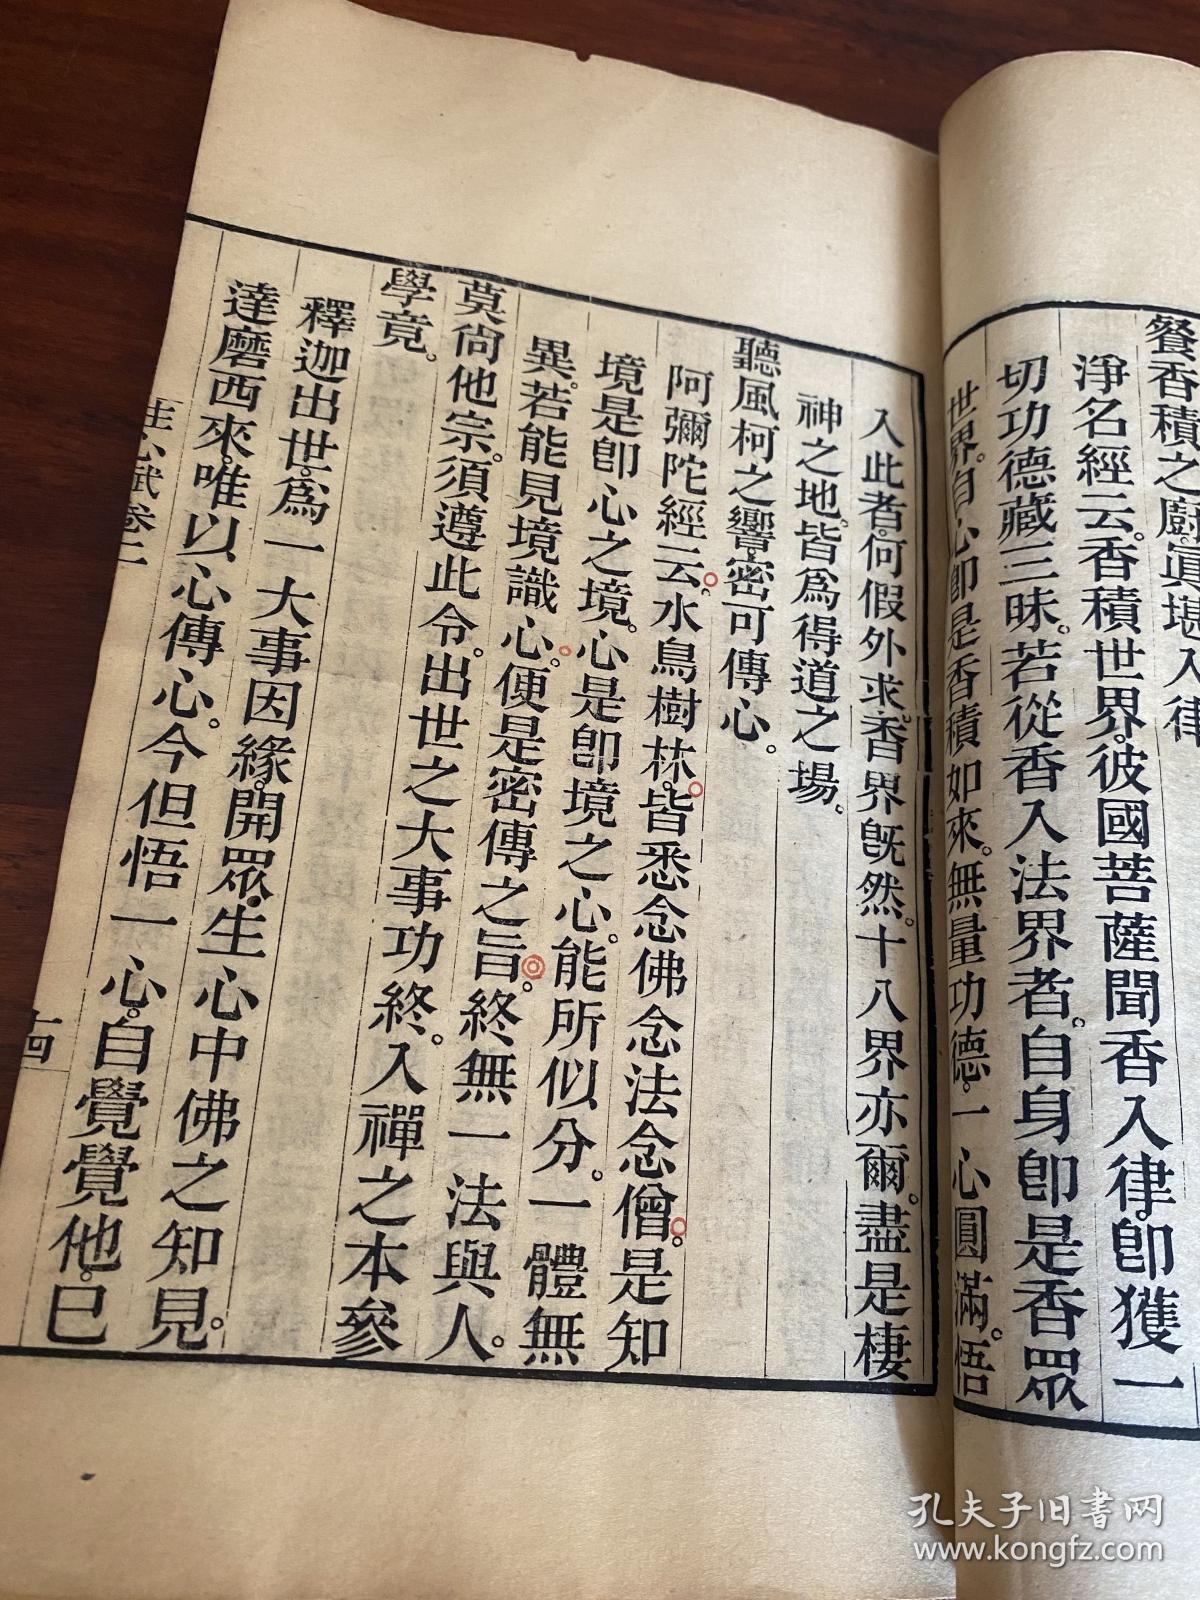 餐香積之廚。眞堪入律
淨名經云。香積世界。彼國菩薩聞香入律。卽獲一
切功德藏三昧。若從香入法界者。自身卽是香眾
世界。自心卽是香積如來。無量功德。一心圓滿。悟
入此者。何假外求。香界旣然。十八界亦爾。盡是棲
神之地。皆爲得道之場。
聽風柯之響。密可傳心。
阿彌陀經云。水鳥樹林。皆悉念佛念法念僧。是知
境是卽心之境。心是卽境之心。能所似分。一體無
異。若能見境識心。便是密傳之旨。終無一法與人。
莫尙他宗。須遵此令。出世之大事功終。入禪之本參
學竟。
釋迦出世。爲一大事因緣。開眾生心中佛之知見。
達磨西來。唯以心傳心。今但悟一心。自覺覺他。已
註心賦卷二
十四
孔夫子旧书网
www.kongfz.com